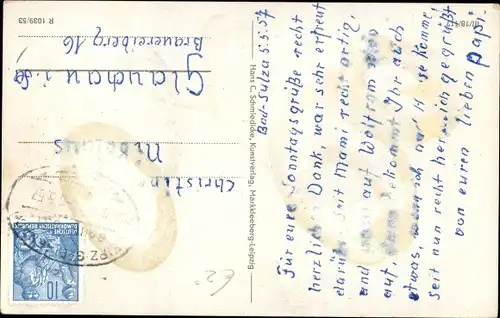 Bad-Sulza 5.5.57
Für eure Sonntagsgrüße recht
herzlich Dank, war sehr erfreut
darüber. Seit Mami recht artig,
und passt auf Wolfram
auf, dann bekommt Ihr auch
etwas, wenn ich nach Hause komme,
Seit nun recht herzlich gegrüßt
von euren lieben Papi
Christine
Nikolaus
Glauchau i. Sa
Brauereiberg 16
R 1039/53
III/18/113
Hans C. Schmiedicke, Kunstverlag, Markkleeberg-Leipzig
DEUTSCHE DEMOKRATISCHE REPUBLIK
10